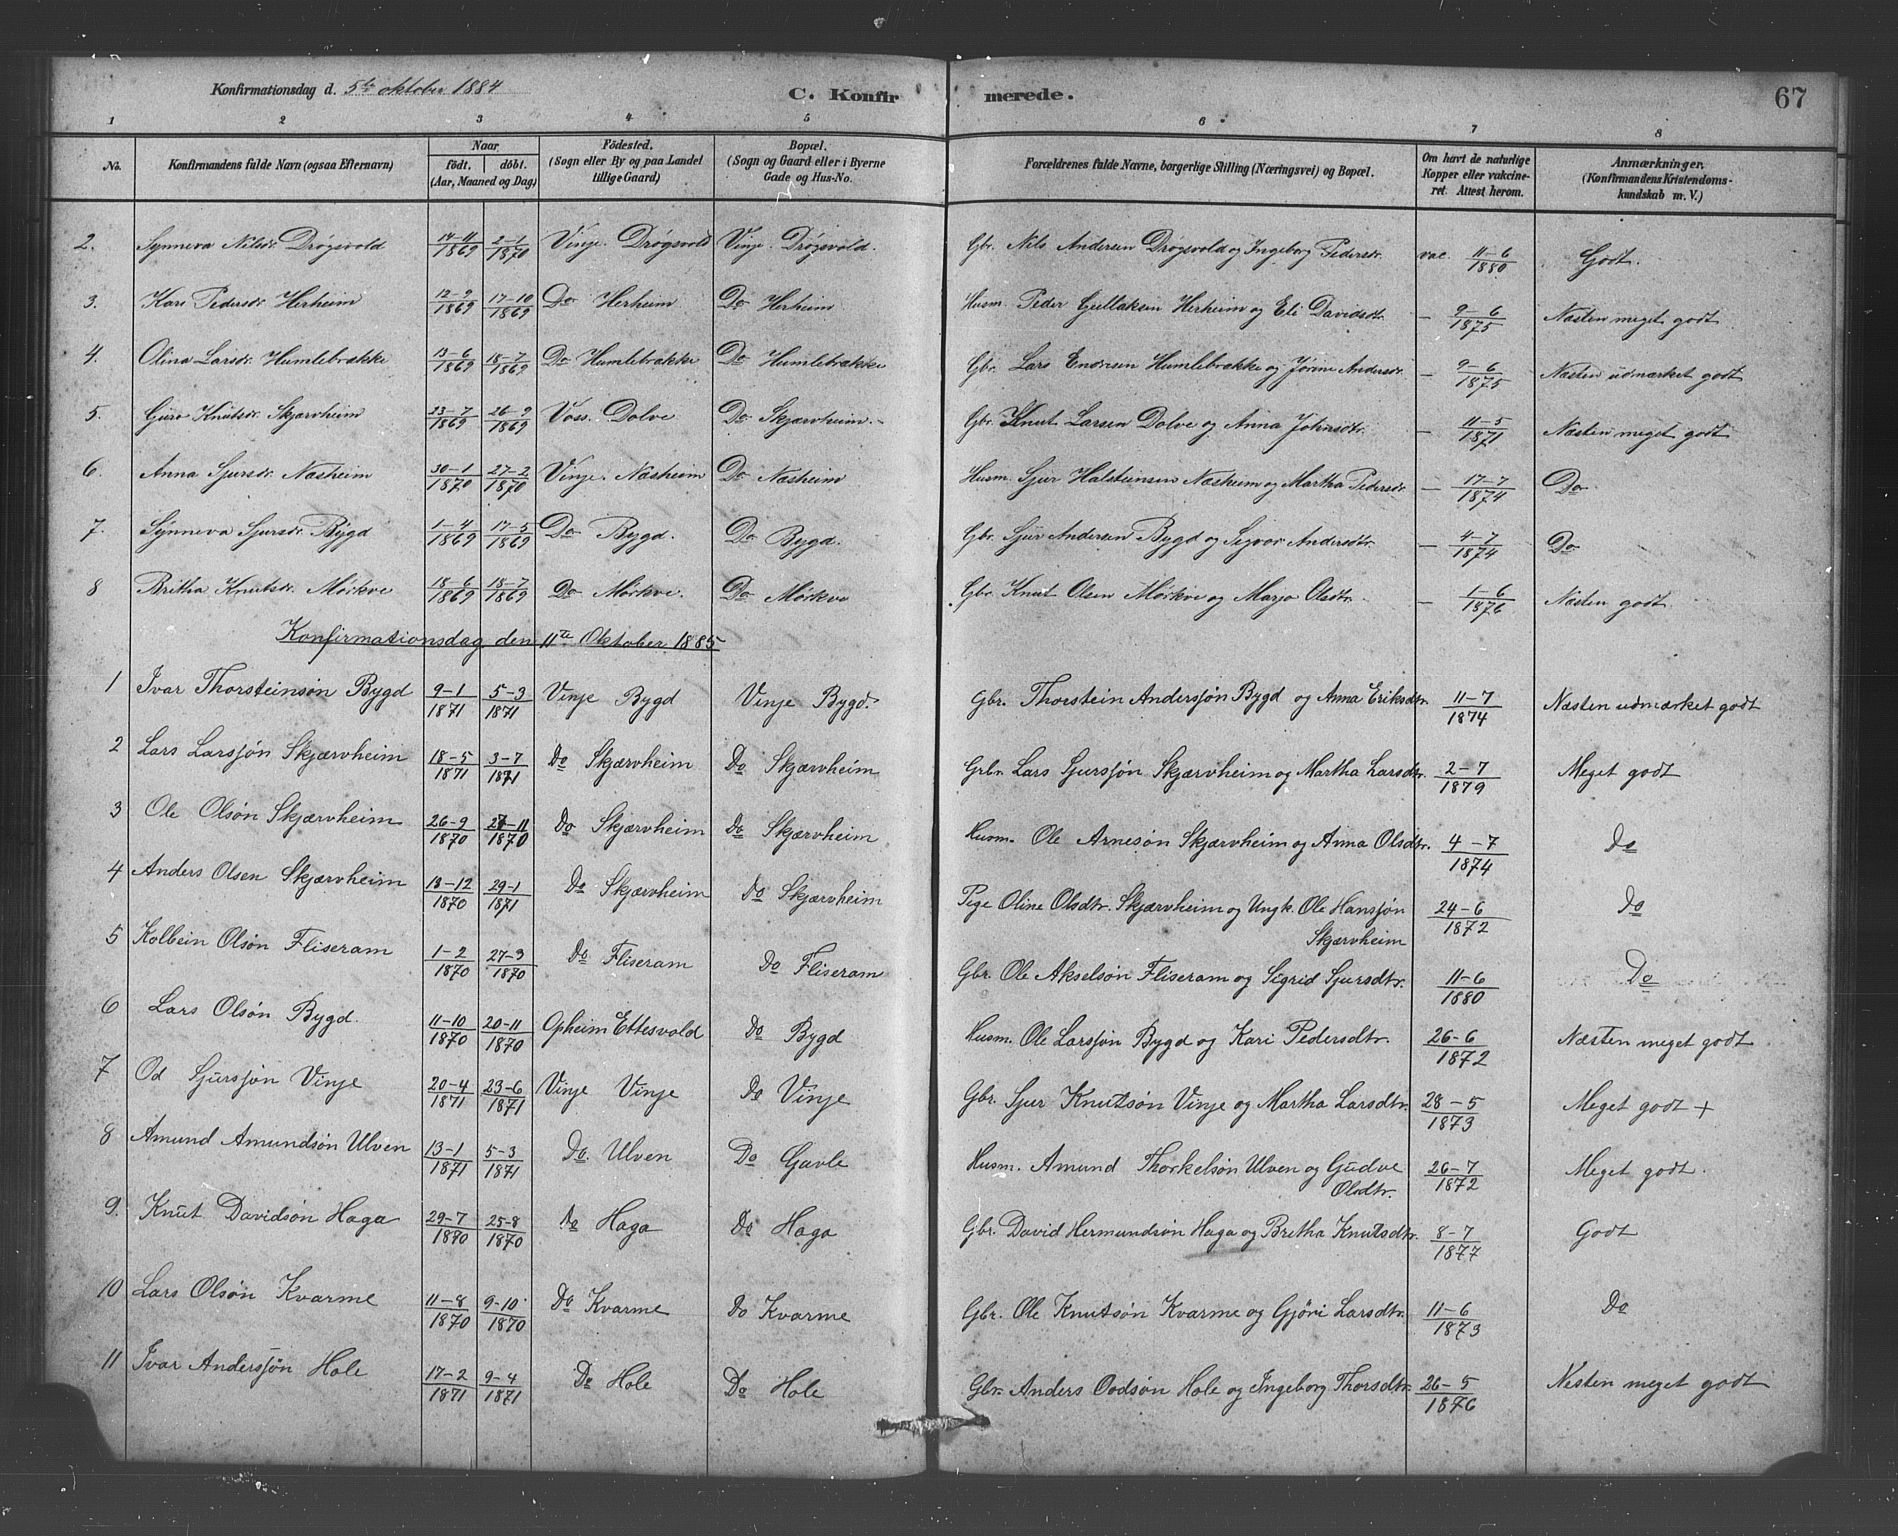 Konfirmationsdag d. 5te oktober 1884 C. Konfirmerede. 67
1 2 3 4 5 6 7 8
No. Konfirmandens fulde Navn (ogsaa Efternavn) Naar født, døbt. (Aar, Maaned og Dag) Fødested. (Sogn eller By og paa Landet tillige Gaard) Bopæl. (Sogn og Gaard eller i Byerne Gade og Hus-No. Forældrenes fulde Navne, borgerlige Stilling (Næringsvei) og Bopæl. Om havt de naturlige Kopper eller vakcineret. Attest herom. Anmærkninger. (Konfirmandens Kristendomskundskab m. V.)
2. Synneva Nilsdr. Drøgsvold 14-11 1869 2-1 1870 Vinje. Drøgsvold Vinje. Drøgsvold. Gbr. Nils Andersen Drøgsvold og Ingeborg Pedersdr. vac. 11-6 1880 Godt.
3. Kari Pedersdr. Herheim 12-9 1869 17-10 1869 Do Herheim Do Herheim Husm. Peder Gullaksen Herheim og Eli Davidsdtr. – 9-6 1875 Næsten meget godt
4. Olina Larsdr. Humlebrække 13-6 1869 18-7 1869 Do Humlebrække Do Humlebrække Gbr. Lars Endresen Humlebrække og Jorine Andersdr. – 9-6 1875 Næsten udmærket godt
5. Guro Knutsdr. Skjærvheim 23-7 1869 26-9 1869 Voss. Dolve Do Skjærvheim. Gbr. Knut Larsen Dolve og Anna Johnsdtr. – 11-5 1871 Næsten meget godt
6. Anna Sjursdr. Næsheim 30-1 1870 27-2 1870 Vinje. Næsheim Do Næsheim Husm. Sjur Halsteinsen Næsheim og Martha Pedersdr. – 17-7 1874 Do
7. Synneva Sjursdr. Bygd 1-4 1869 17-5 1869 Do Bygd. Do Bygd. Gbr. Sjur Andersen Bygd og Sigvor Andersdtr. – 4-7 1874 Do
8 Britha Knutsdr. Mørkve 18-6 1869 18-7 1869 Do Mørkve. Do Mørkve Gbr. Knut Olsen Mørkve og Marjo Olsdtr. – 1-6 1876 Næsten godt
Konfirmationsdag den 11te Oktober 1885
1 Ivar Thorsteinsøn Bygd 9-1 1871 5-3 1871 Vinje Bygd Vinje Bygd. Gbr. Thorstein Andersjøn Bygd og Anna Eriksdtr. 11-7 1874 Næsten udmærket godt
2 Lars Larsjøn Skjærvheim 18-5 1871 3-7 1871 Do Skjærvheim Do Skjærvheim Grbr. Lars Sjursjøn Skjærvheim og Martha Larsdtr. 2-7 1879 Meget godt
3 Ole Olsøn Skjærvheim 26-9 1870 27-11 1870 Do Skjærvheim Do Skjærvheim Husm. Ole Arnesøn Skjærvheim og Anna Olsdtr. 4-7 1874 Do
4 Anders Olsen Skjærvheim 13-12 1870 29-1 1871 Do Skjærvheim Do Skjærvheim Pige Oline Olsdtr. Skjærvheim og Ungk. Ole Hansjøn Skjærvheim 24-6 1872 Do
5 Kolbein Olsøn Fliseram 1-2 1870 27-3 1870 Do Fliseram Do Fliseram Gbr. Ole Akselsøn Fliseram og Sigrid Sjursdtr. 11-6 1880 Do
6 Lars Olsøn Bygd. 11-10 1870 20-11 1870 Opheim Ettesvold Do Bygd Husm. Ole Larsjøn Bygd og Kari Pedersdtr. 26-6 1872 Næsten meget godt
7 Od Sjursjøn Vinje 20-4 1871 23-6 1871 Vinje Vinje Do Vinje Gbr. Sjur Knutsøn Vinje og Martha Larsdtr. 28-5 1873 Meget godt +
8 Amund Amundsøn Ulven 13-1 1871 5-3 1871 Do. Ulven Do Gavle Husm. Amund Thorkelsøn Ulven og Gudve Olsdtr. 26-7 1872 Meget godt.
9. Knut Davidsøn Haga 29-7 1870 25-8 1870 Do Haga Do Haga Gbr. David Hermundsøn Haga og Britha Knutsdtr. 8-7 1877 Godt
10 Lars Olsøn Kvarme 11-8 1870 9-10 1870 Do Kvarme Do Kvarme Gbr. Ole Knutsøn Kvarme og Gjøri Larsdtr. 11-6 1873 Do
11 Ivar Andersjøn Hole 17-2 1871 9-4 1871 Do Hole Do Hole Gbr. Anders Oddsøn Hole og Ingeborg Thorsdtr. 26-5 1876 Nesten meget godt